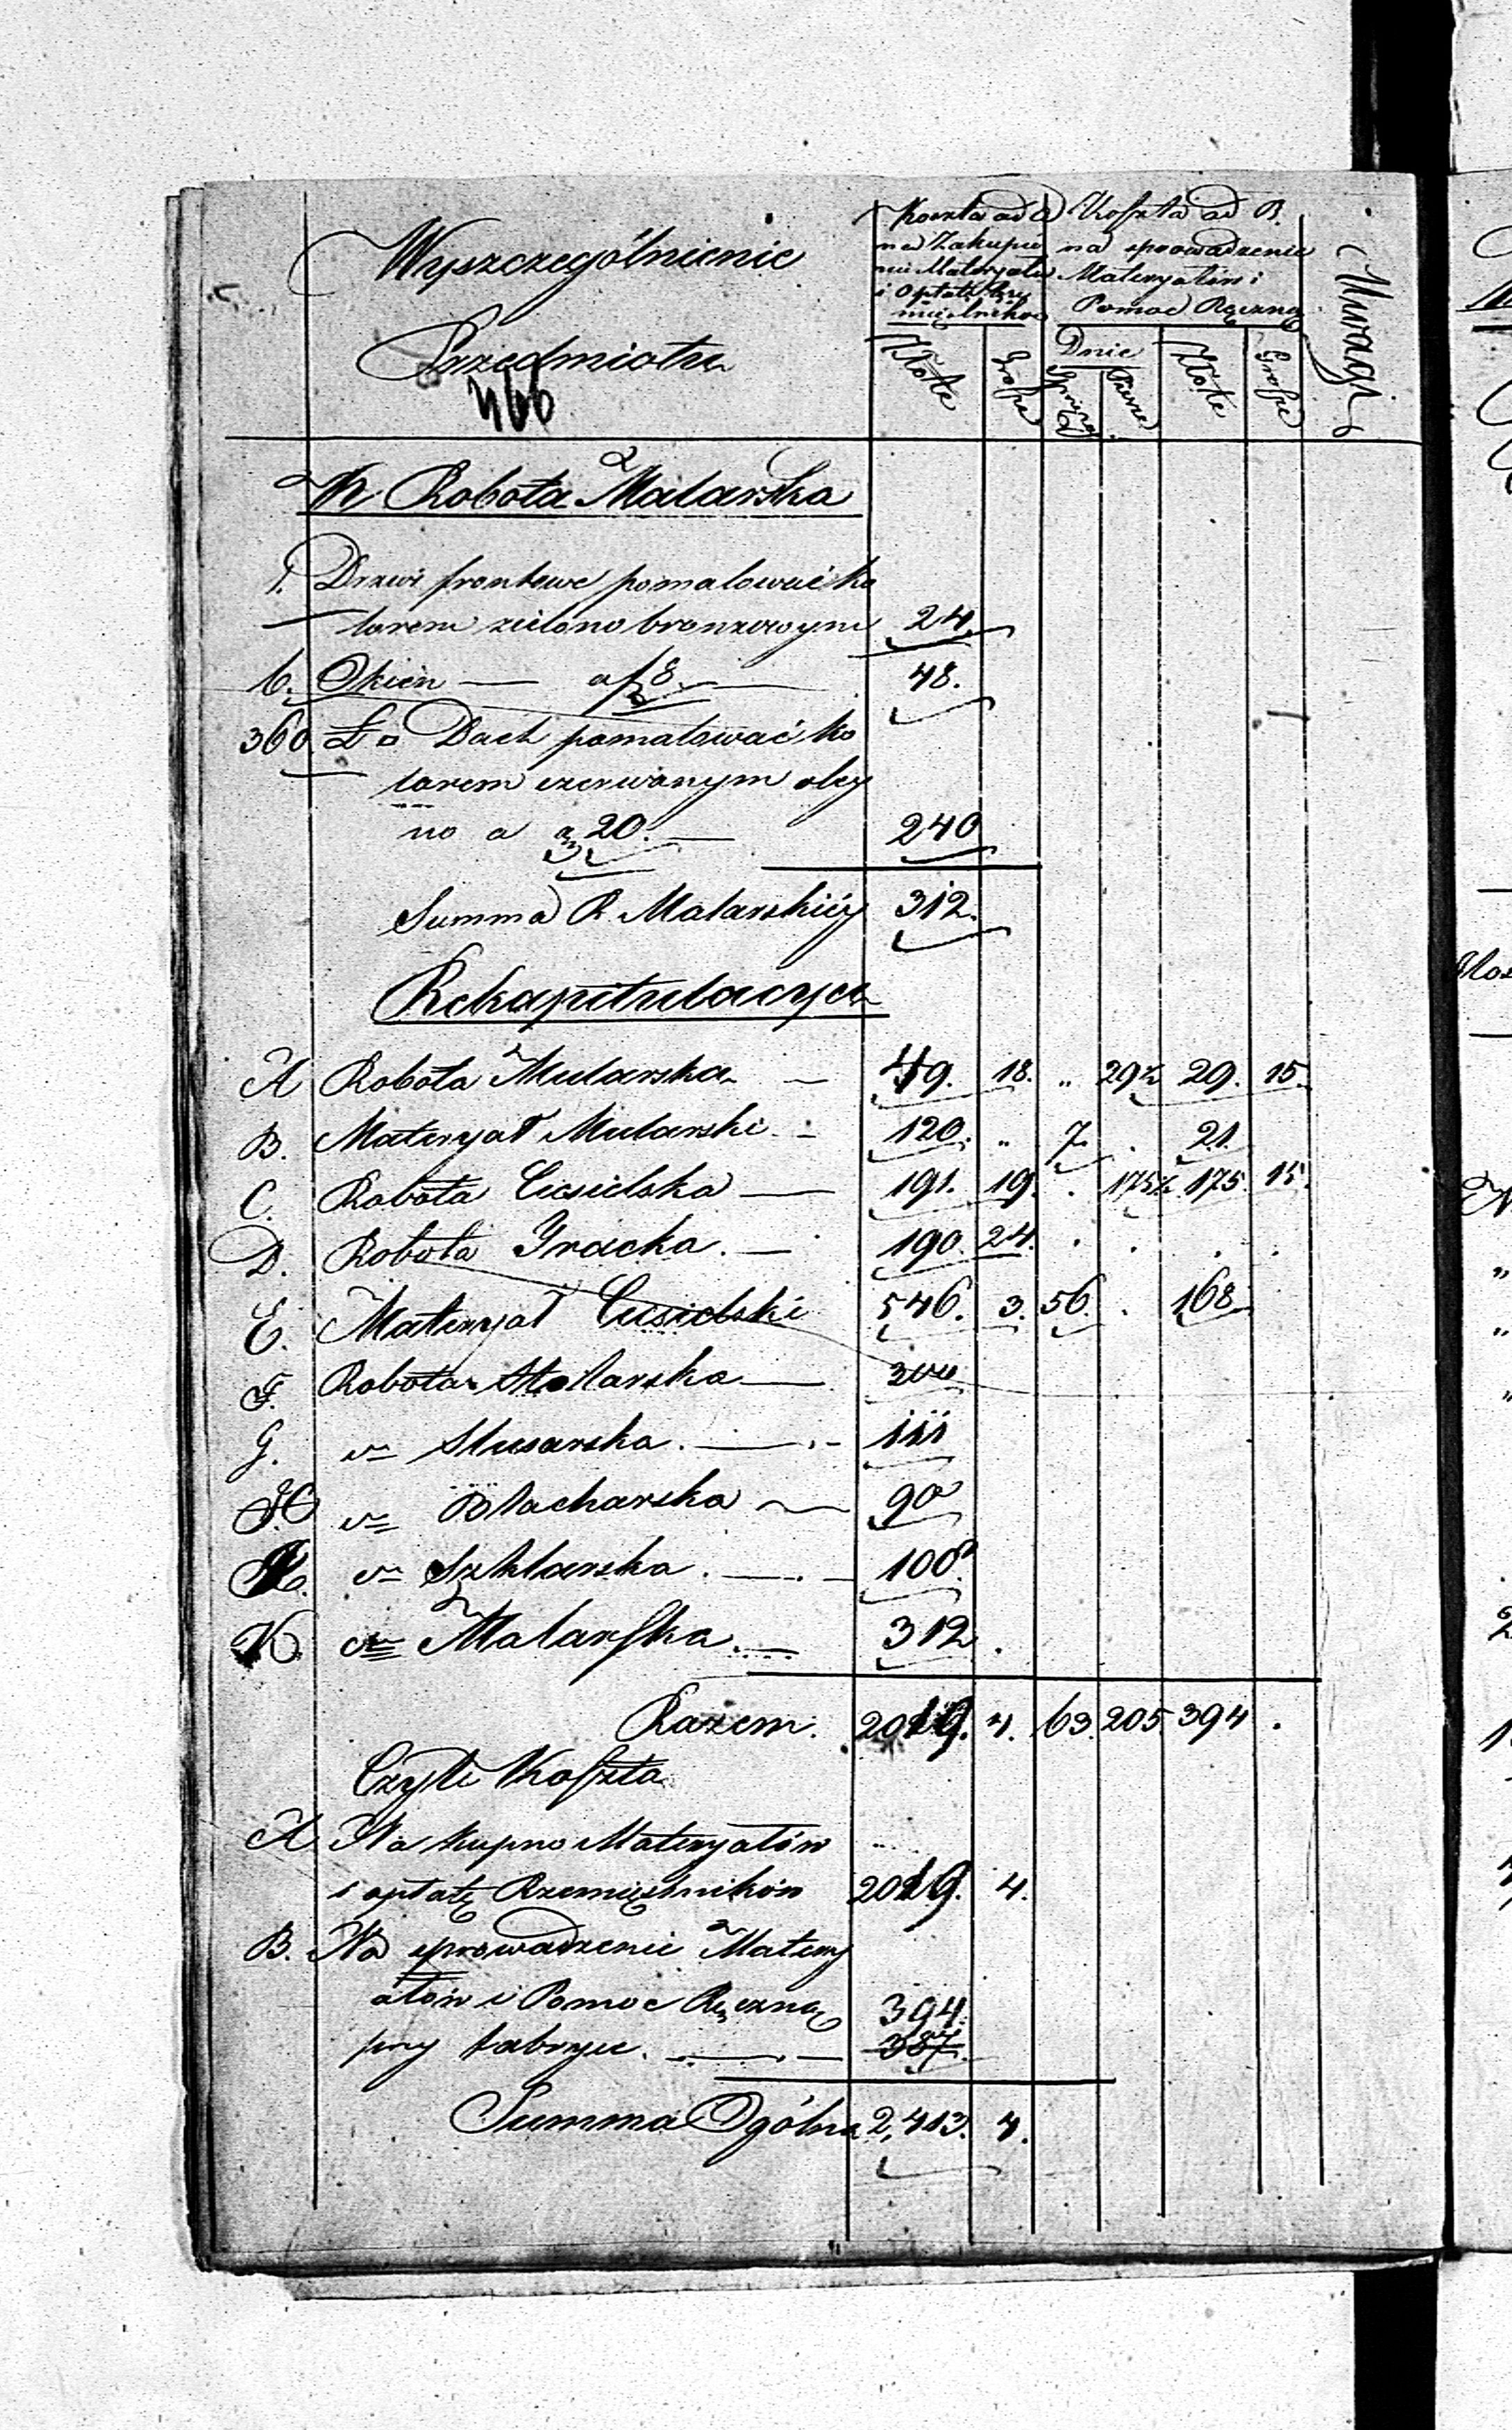 Wyszczególnienie
Przedmiotu
466
Koszta ad A
na Zakupie
nie Materyałów
i Opłatę Rze
mieślników
Koszta ad B.
na sprowadzenie
Materyałów i
Pomoc Ręczną
Uwagi
Złote Grosze Dnie Złote Grosze
Sprzęż. Piesze
K Robota Malarska
1. Drzwi frontowe pomalować ko
lorem zielono bronzowym 24.
6. Okien — a f 8. — 48.
360 Ł □ Dach pomalować ko
lorem czerwonym oley
no a g 20. — 240
Summa R. Malarskiéy 312.
Rekapitulacya
A Robota Mularska — 49. 18. „ 29½ 29. 15.
B. Materyał Mularski — 120. „ 7. . 21.
C. Robota Ciesielska — 191. 19. . 175½ 175. 15.
D. Robota Tracka. — 190. 24. . . . .
E. Materyał Ciesielski 546. 3. 56. . 168.
F. Robota Stolarska — 300
G. Slusarska. — 111
H Blacharska — 90
Szklarska. — 100.
K Malarska. — 312.
Razem. 2019. 4. 63. 205 394 .
Czyli Koszta
A Na kupno Materyałów
i opłatę Rzemieślników 2019. 4.
B. Na sprowadzenie Matery
ałów i Pomoc Ręczną 394.
przy fabryce. — 387.
Summa Ogólna 2,413. 4.